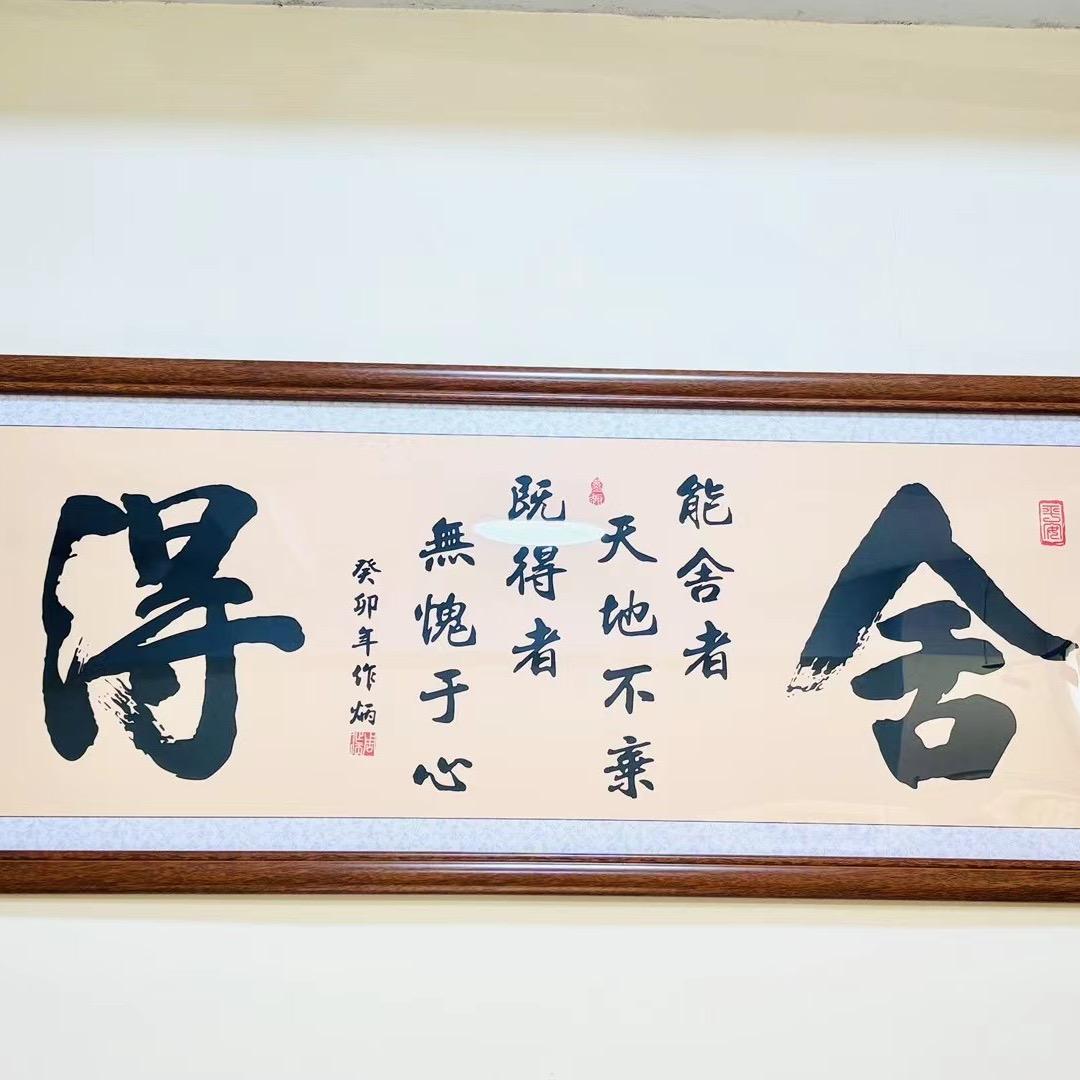 舍
能舍者
天地不棄
既得者
無愧于心
癸卯年作炳
得